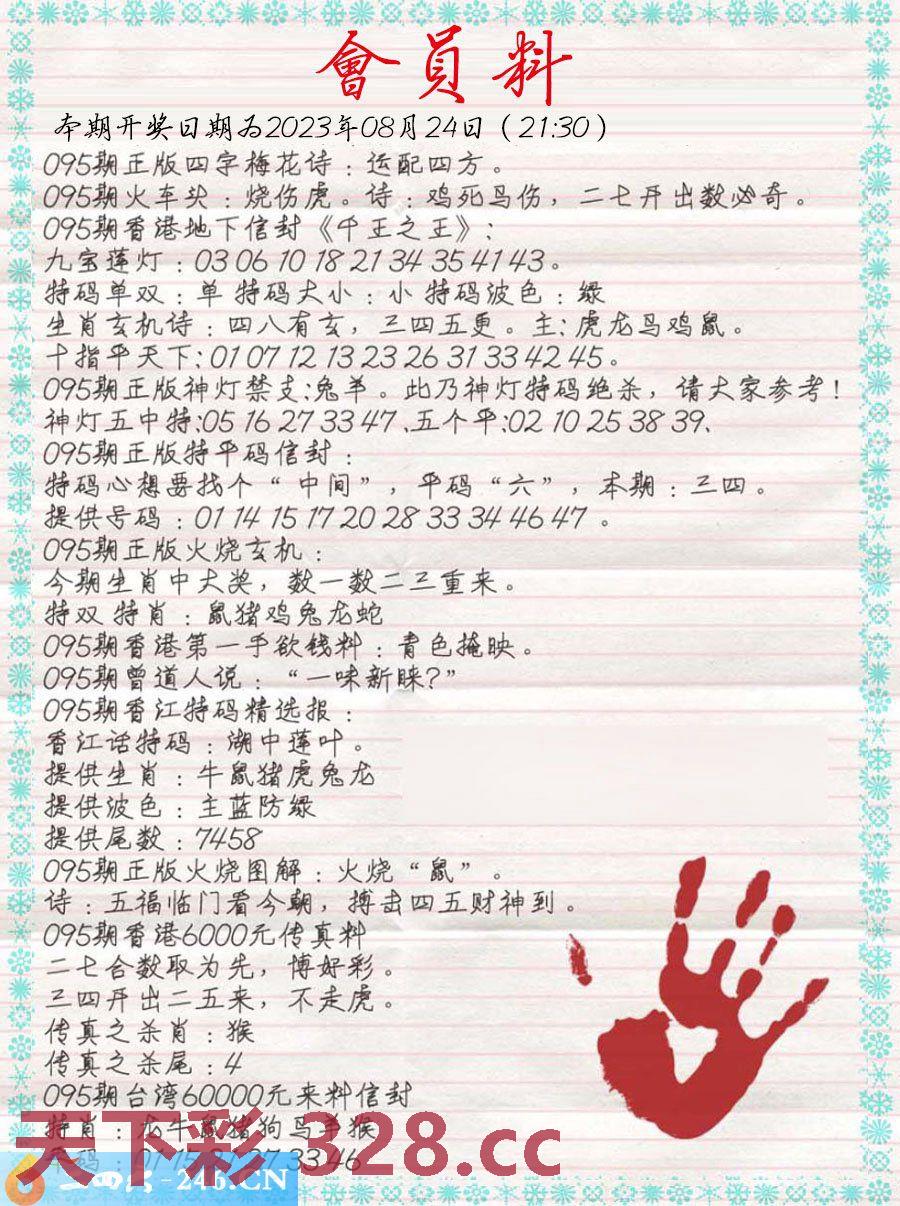 會員料
本期开奖日期为2023年08月24日（21:30）
095期正版四字梅花诗：运配四方。
095期火车头：烧伤虎。诗：鸡死鸟伤，二七开出数必奇。
095期香港地下信封《千王之王》：
九宝莲灯：03 06 10 18 21 34 35 41 43。
特码单双：单 特码大小：小 特码波色：绿
生肖玄机诗：四八有玄，三四五更。主：虎龙马鸡鼠。
十指平天下：01 07 12 13 23 26 31 33 42 45。
095期正版神灯禁支：兔羊。此乃神灯特码绝杀，请大家参考！
神灯五中特:05 16 27 33 47、五个平:02 10 25 38 39、
095期正版特平码信封：
特码心想要找个“中间”，平码“六”，本期：三四。
提供号码：01 14 15 17 20 28 33 34 46 47 。
095期正版火烧玄机：
今期生肖中大奖，数一数二三重来。
特双 特肖：鼠猪鸡兔龙蛇
095期香港第一手欲钱料：青色掩映。
095期曾道人说：“一味新睐?”
095期香江特码精选报：
香江话特码：湖中莲叶。
提供生肖：牛鼠猪虎兔龙
提供波色：主蓝防绿
提供尾数：7458
095期正版火烧图解：火烧“鼠”。
诗：五福临门看今朝，搏击四五财神到。
095期香港6000元传真料
二七合数取为先，博好彩。
三四开出二五来，不走虎。
传真之杀肖：猴
传真之杀尾：4
095期台湾60000元来料信封
特肖：龙牛鼠猪狗马羊猴
码：01 15 27 33 46
天下彩 328.cc
二四六-246.CN